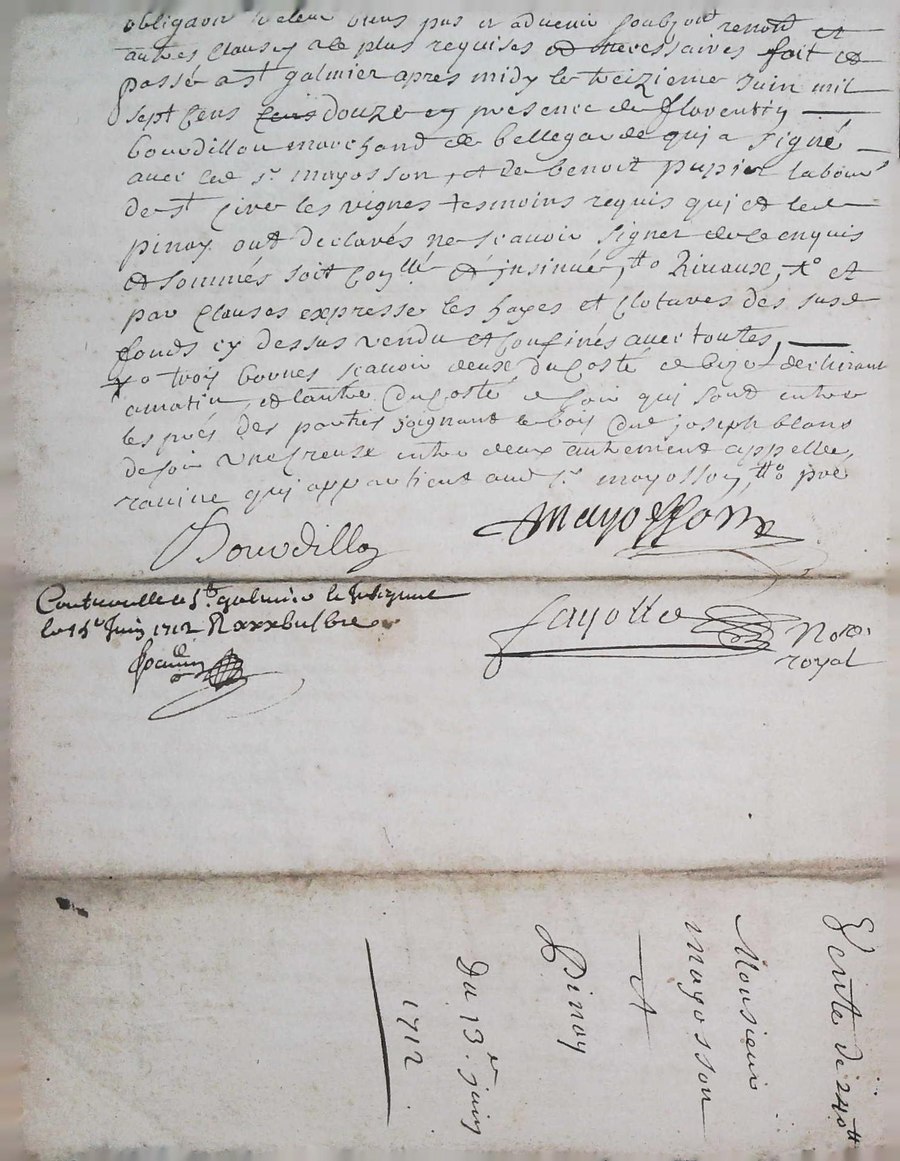 obligaon de leur biens pns et advenir soubzon renon et
autres clauses a ce plus requises et necessaires fait et
passé a st galmier apres midy le treizieme juin mil
sept cens cens douze en presence de florentin
bourdillon marchand de bellegarde qui a signé
avec led sr mayosson, et de benoit pupier labour
de st Cire les vignes tesmoins requis qui et led
pinay ont declarés ne scavoir signer de ce enquis
et sommés soit collé et insinué, Rivaux, et
par clauses expresse les hayes et clotures des susd
fonds cy dessus vendu et confinés avec toutes,
trois bornes scavoir deux du costé de bize declinant
a matin, et lautre du costé de soir qui sont entre
les prés des parties joignant le bois dud joseph blanc
de soir une creuse entre deux autrement appellé,
ravine qui appartient aud sr mayosson,
Bourdillon
Mayosson
Controollé a st galmier le
le juin 1712
fayolle
Nore
royal
Vente de 240tt
Monsieur
mayosson
A
Pinay
Du 13e juin
1712